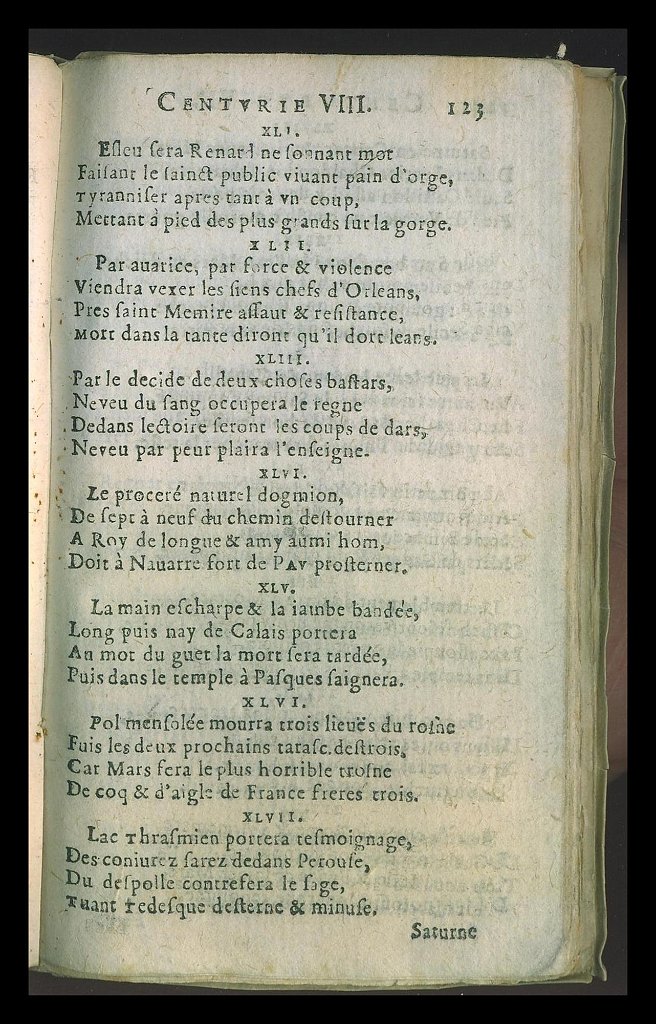 CENTVRIE VIII. 123
XLI.
Esleu sera Renard ne sonnant mot
Faisant le sainct public viuant pain d'orge,
Tyranniser apres tant à vn coup,
Mettant à pied des plus grands sur la gorge.
XLII.
Par auarice, par force & violence
Viendra vexer les siens chefs d'Orleans,
Pres saint Memire assaut & resistance,
Mort dans sa tante diront qu'il dort leans.
XLIII.
Par le decide de deux choses bastars,
Neveu du sang occupera le regne
Dedans lectoire seront les coups de dars,
Neveu par peur plaira l'enseigne.
XLVI.
Le proceré naturel dogmion,
De sept à neuf du chemin destourner
A Roy de longue & amy aumi hom,
Doit à Nauarre fort de PAV prosterner.
XLV.
La main escharpe & la iambe bandée,
Long puis nay de Calais portera
Au mot du guet la mort sera tardée,
Puis dans le temple à Pasques saignera.
XLVI.
Pol mensolée mourra trois lieuës du rosne
Fuis les deux prochains tarasc destrois,
Car Mars fera le plus horrible trosne
De coq & d'aigle de France freres trois.
XLVII.
Lac Thrasmien portera tesmoignage,
Des coniurez sarez dedans Perouse,
Du despolle contrefera le sage,
Tuant Tedesque desterne & minuse.
Saturne